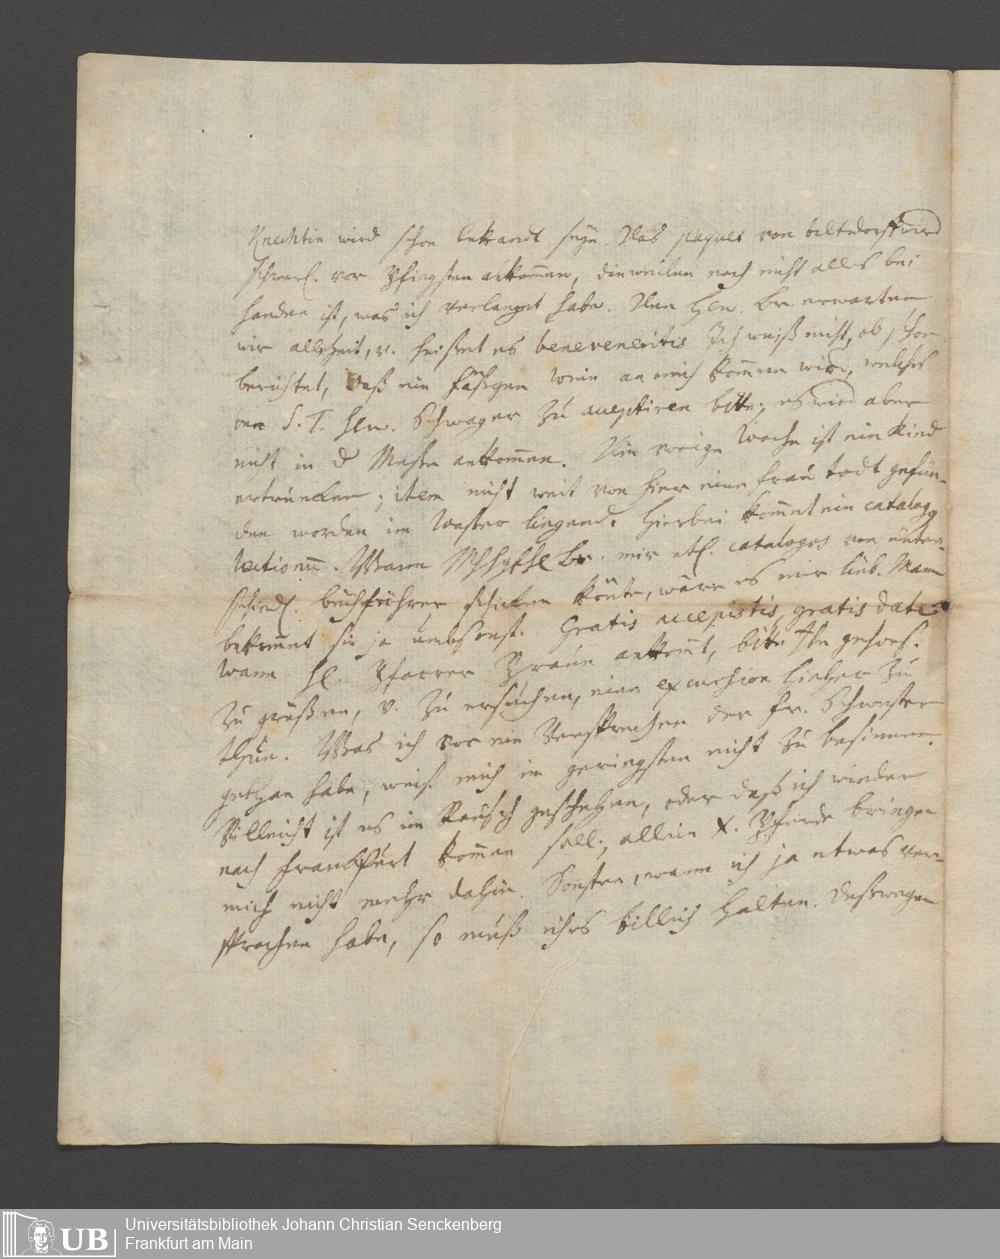 Knechtin wird schon bekandt seyn. Das paquet von wird
schwerl. vor Pfingsten ankom̄en, dieweilen noch nicht alles bei
handen ist, was ich verlanget habe. Den Hln. Br. erwarten
wir allezeit, v. heißet es beneveneritis. Ich weiß nicht, ob schon
berichtet, daß ein Fäßgen wein an mich kom̄en wird, welches
den S. T. Hln. Schwager zu acceptiren bitte; es wird aber
nicht in d Messe ankom̄en. Woche ist ein Kind
ertruncken; item nicht weit von hier eine frau todt gefun-
den worden im Waßer liegend. Hierbei kom̄et ein catalog
lectionū. Wann Br. mir etl. catalogos von unter-
schiedl. buchführer schicken könte, wäre es mir lieb. Mann
bekom̄et sie ja umbsonst. Gratis accepistis gratis date.
Wann H. Pfarrer Braun ankom̄t, bitte Ihn gehors.
zu grüßen, v. zu ersuchen, eine excursion hieher zu
thun. Was ich vor ein Versprechen der Fr. Schwester
gethan habe, weiß mich im geringsten nicht zu besinnen.
Villeicht ist es im Rausch geschehen, oder daß ich wieder
nach Franckfurt kom̄en soll; allein X. Pferde bringen
mich nicht mehr dahin. Sonsten, wann ich ja etwas ver-
sprochen habe, so muß ichs billich halten. Deßwegen
Universitätsbibliothek Johann Christian Senckenberg
Frankfurt am Main
UB